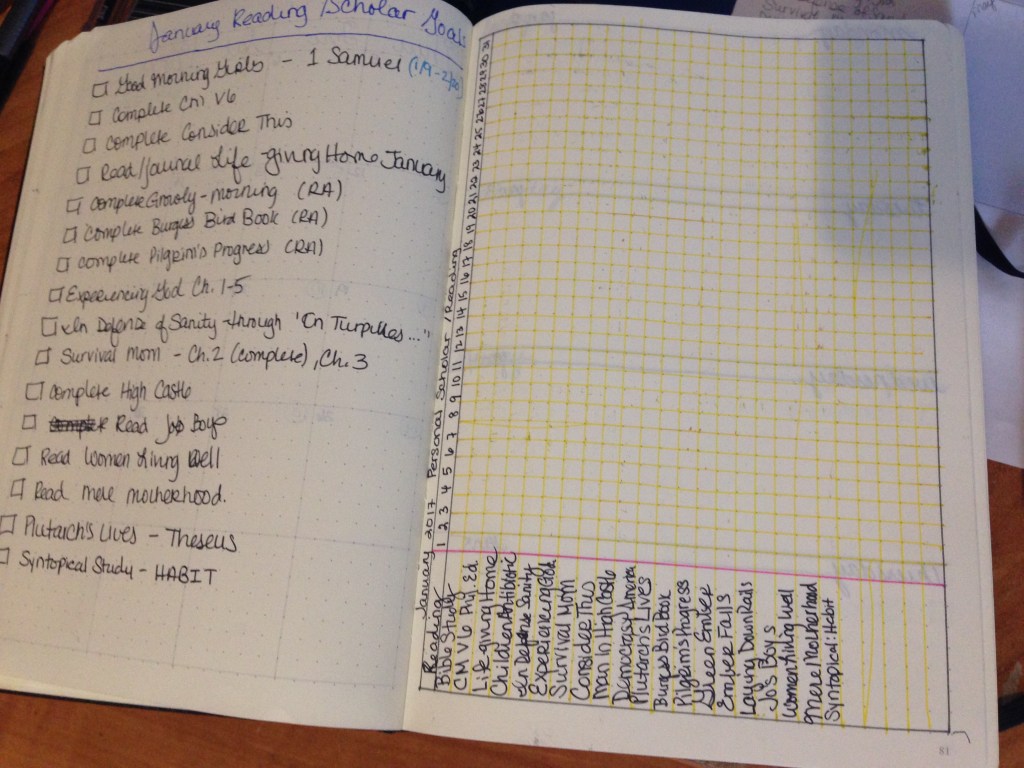 January Reading/Scholar Goals
Good Morning Girls - 1 Samuel (1/9-2/20)
Complete CM V6
Complete Consider This
Read/Journal Life-giving Home January
Complete - morning (RA)
Complete Burgess Bird Book (RA)
Complete Pilgrim's Progress (RA)
Experiencing God Ch. 1-5
In Defense of Sanity through "On Turpitudes..."
Survival Mom - Ch. 2 (complete), Ch. 3
Complete High Castle
Read Jo's Boys
Read Women Living Well
Read Mere Motherhood.
Plutarch's Lives - Theseus
Syntopical Study - HABIT
January 2017 Personal Scholar/Reading
Reading 1 2 3 4 5 6 7 8 9 10 11 12 13 14 15 16 17 18 19 20 21 22 23 24 25 26 27 28 29 30 31
Bible Study
CM V6 Phil. Ed.
Life giving Home
Children Antibiotic
In Defense Sanity
Experiencing God
Survival Mom
Consider This
Man in High Castle
Democracy America
Plutarch's Lives
Burgess Bird Book
Pilgrim's Progress
Green Ember
Ember Falls
Laying Down Rails
Jo's Boys
Women Living Well
Mere Motherhood
Syntopical: Habit
81